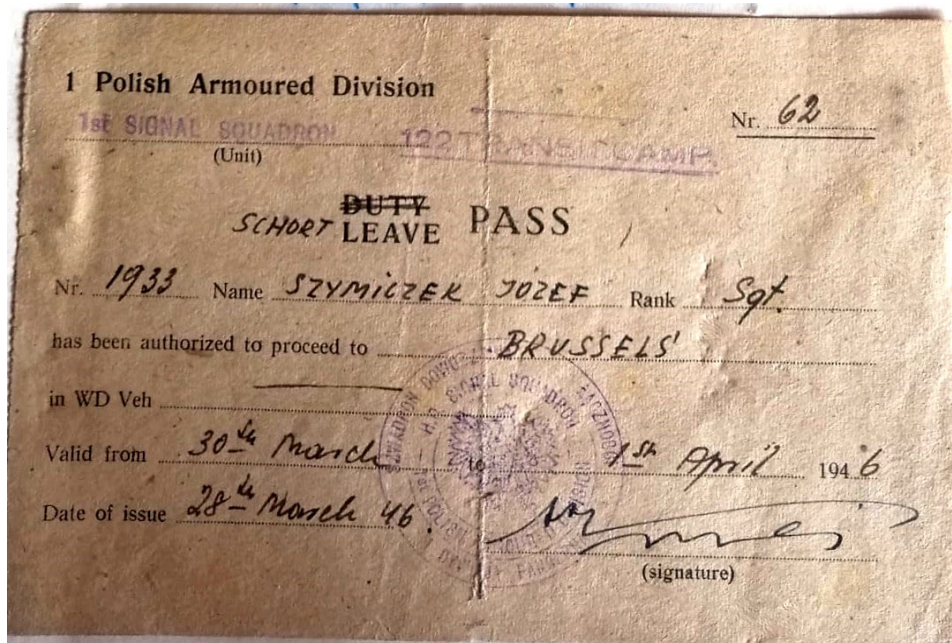 1 Polish Armoured Division
Nr. 62
1st SIGNAL SQUADRON 122 TRANSIT CAMP.
(Unit)
DUTY
SCHORT LEAVE PASS
Nr. 1933 Name SZYMICZEK JÓZEF Rank Sgt.
has been authorized to proceed to BRUSSELS
in WD Veh
Valid from 30th March to 1st April 1946
Date of issue 28th March 46.
(signature)
H.Q. SIGNAL SQUADRON